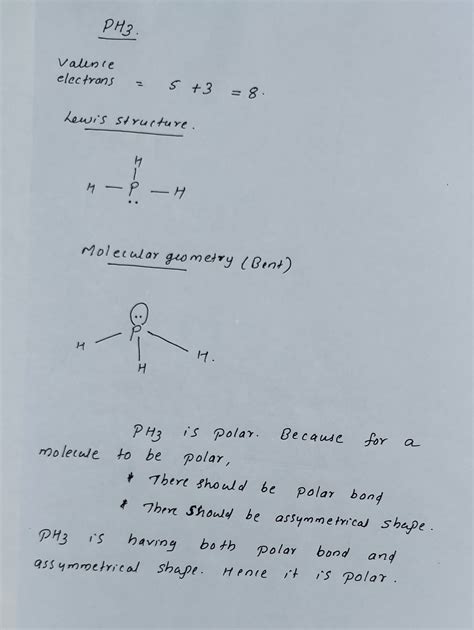 PH3.
Valence
electrons = 5 + 3 = 8.
Lewis structure.
H
H — P — H
Molecular geometry (Bent)
P
H H H.
PH3 is polar. Because for a
molecule to be polar,
* There should be polar bond
* There should be assymmetrical shape.
PH3 is having both polar bond and
assymmetrical shape. Hence it is polar.